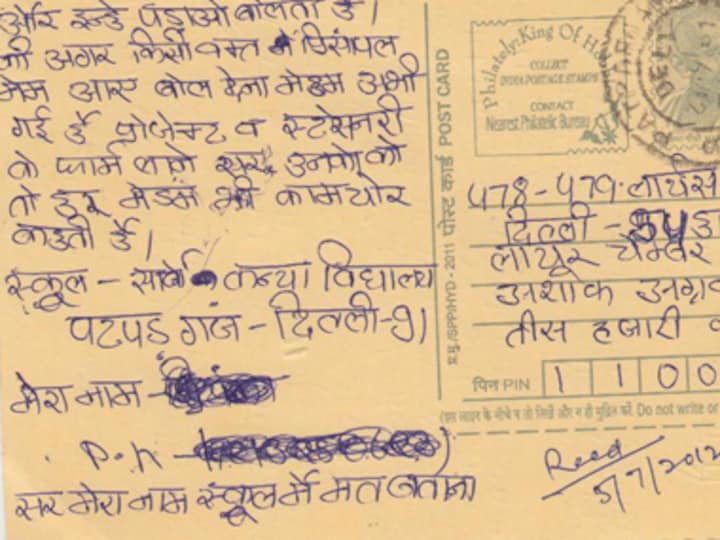 और इन्हे पड़ाओ बोलती है।
जी अगर किसी वक्त प्रिंसीपल
मेम आए बोल देना मेडम अभी
गई है प्रोजेक्ट व स्टेशनरी
तो हूर मेडम भी कामचोर
कहती है।
स्कूल - सर्वो कन्या विद्यालय
पटपड़ गंज - दिल्ली-91
मेरा नाम -
P.n -
सर मेरा नाम स्कूल में मत बताना
Philately: King Of
COLLECT
INDIA POSTAGE STAMPS
CONTACT
Nearest Philatelic Bureau
पोस्ट कार्ड POST CARD
2011
478-479, लायर्स
दिल्ली - 54
लायूर चेम्बर
अशोक अग्र
तीस हजारी
पिन PIN 1 1 0 0
(इस लाइन के नीचे न तो लिखें और न ही मुद्रित करें. Do not write or
Recd
5/7/2012